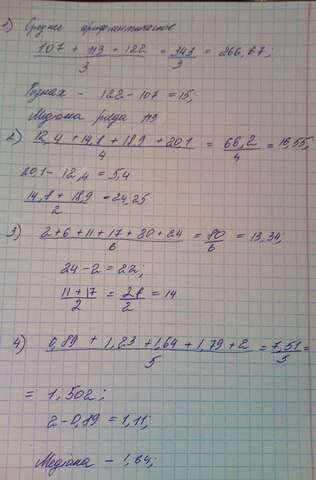 1) Среднее арифметическое
107 + 113 + 122 / 3 = 343 / 3 = 266,67;
Размах - 122 - 107 = 15,
Медиана ряда 113
2) 12,4 + 14,8 + 18,9 + 20,1 / 4 = 66,2 / 4 = 16,55;
20,1 - 12,4 = 5,4
14,8 + 18,9 / 2 = 24,25
3) 2+6+11+17+20+24 / 6 = 80 / 6 = 13,34;
24 - 2 = 22;
11 + 17 / 2 = 28 / 2 = 14
4) 0,89 + 1,23 + 1,64 + 1,79 + 2 / 5 = 7,51 / 5 =
= 1,502;
2 - 0,89 = 1,11;
Медиана - 1,64;